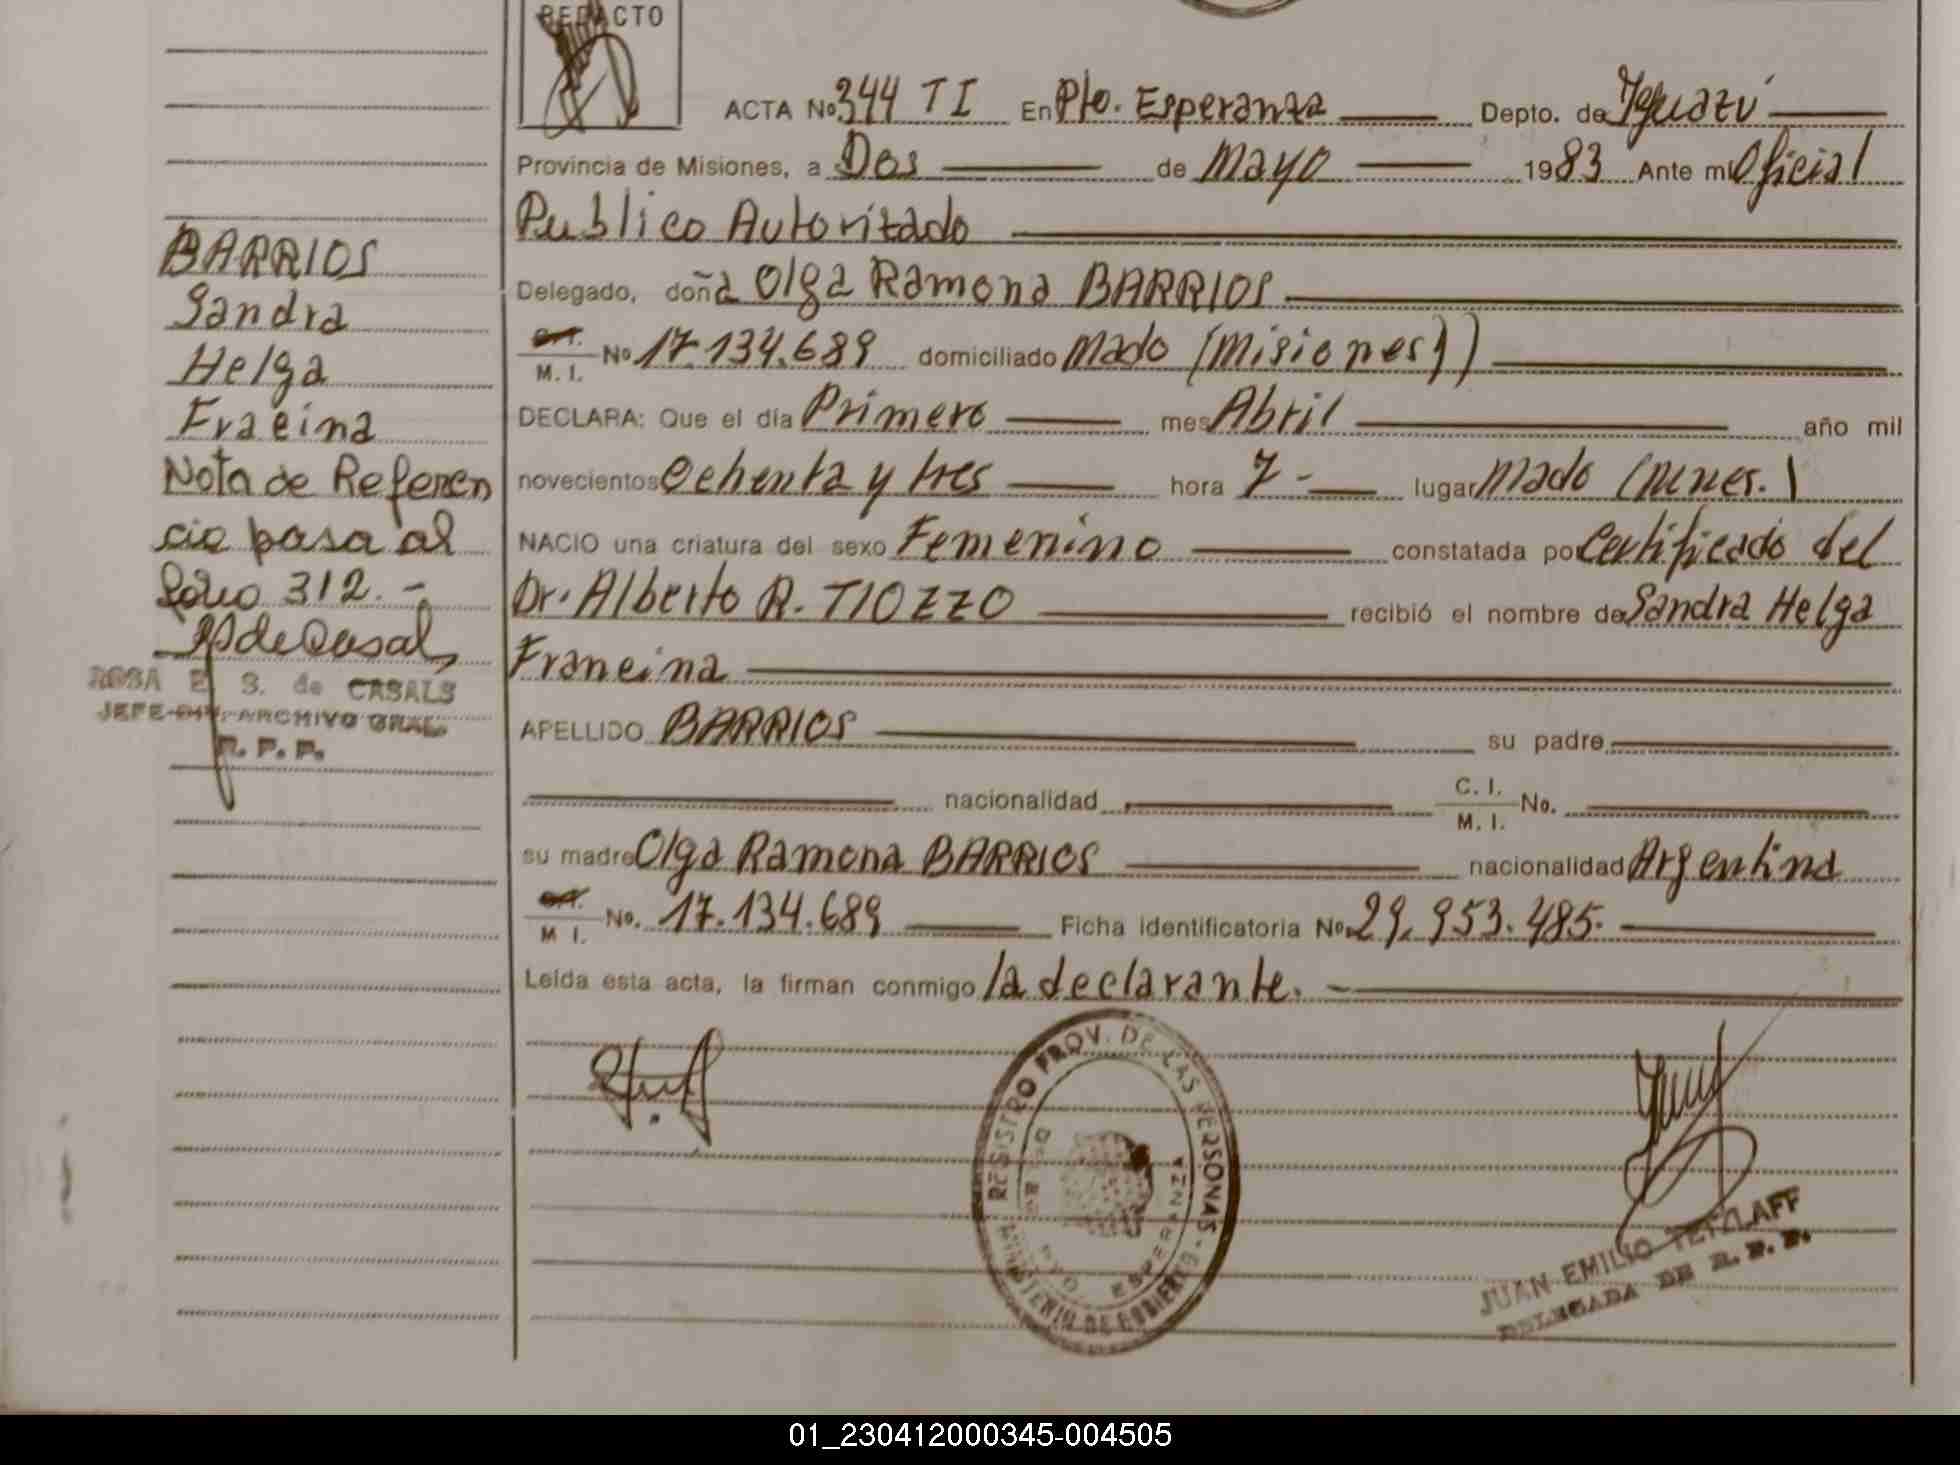 REDACTO
ACTA No 344 TI En Pto. Esperanza Depto. de Iguazú
Provincia de Misiones, a Dos de Mayo 1983 Ante mi Oficial
Publico Autoritado
Delegado, doña Olga Ramona BARRIOS
C.I. M. I. No 17.134.689 domiciliado Mado (Misiones)
DECLARA: Que el día Primero mes Abril año mil
novecientos Ochenta y tres hora 7 - lugar Mado
NACIO una criatura del sexo Femenino constatada por Certificado del
Dr. Alberto R. TIOZZO recibió el nombre de Sandra Helga
Francina
APELLIDO BARRIOS su padre
nacionalidad C. I. M. I. No.
su madre Olga Ramona BARRIOS nacionalidad Argentina
C.I. M I. No. 17.134.689 Ficha identificatoria No. 29.953.485.
Leída esta acta, la firman conmigo la declarante. -
BARRIOS
Sandra
Helga
Fraeina
Nota de Referen
cia pasa al
folio 312. -
ROSA E. S. de CASALS
JEFE DIV. ARCHIVO GRAL.
R. P. P.
REGISTRO PROV. DE LAS PERSONAS - MINISTERIO DE GOBIERNO
PTO. ESPERANZA
JUAN EMILIO TETZLAFF
DELEGADA DE R. P. P.
01_230412000345-004505